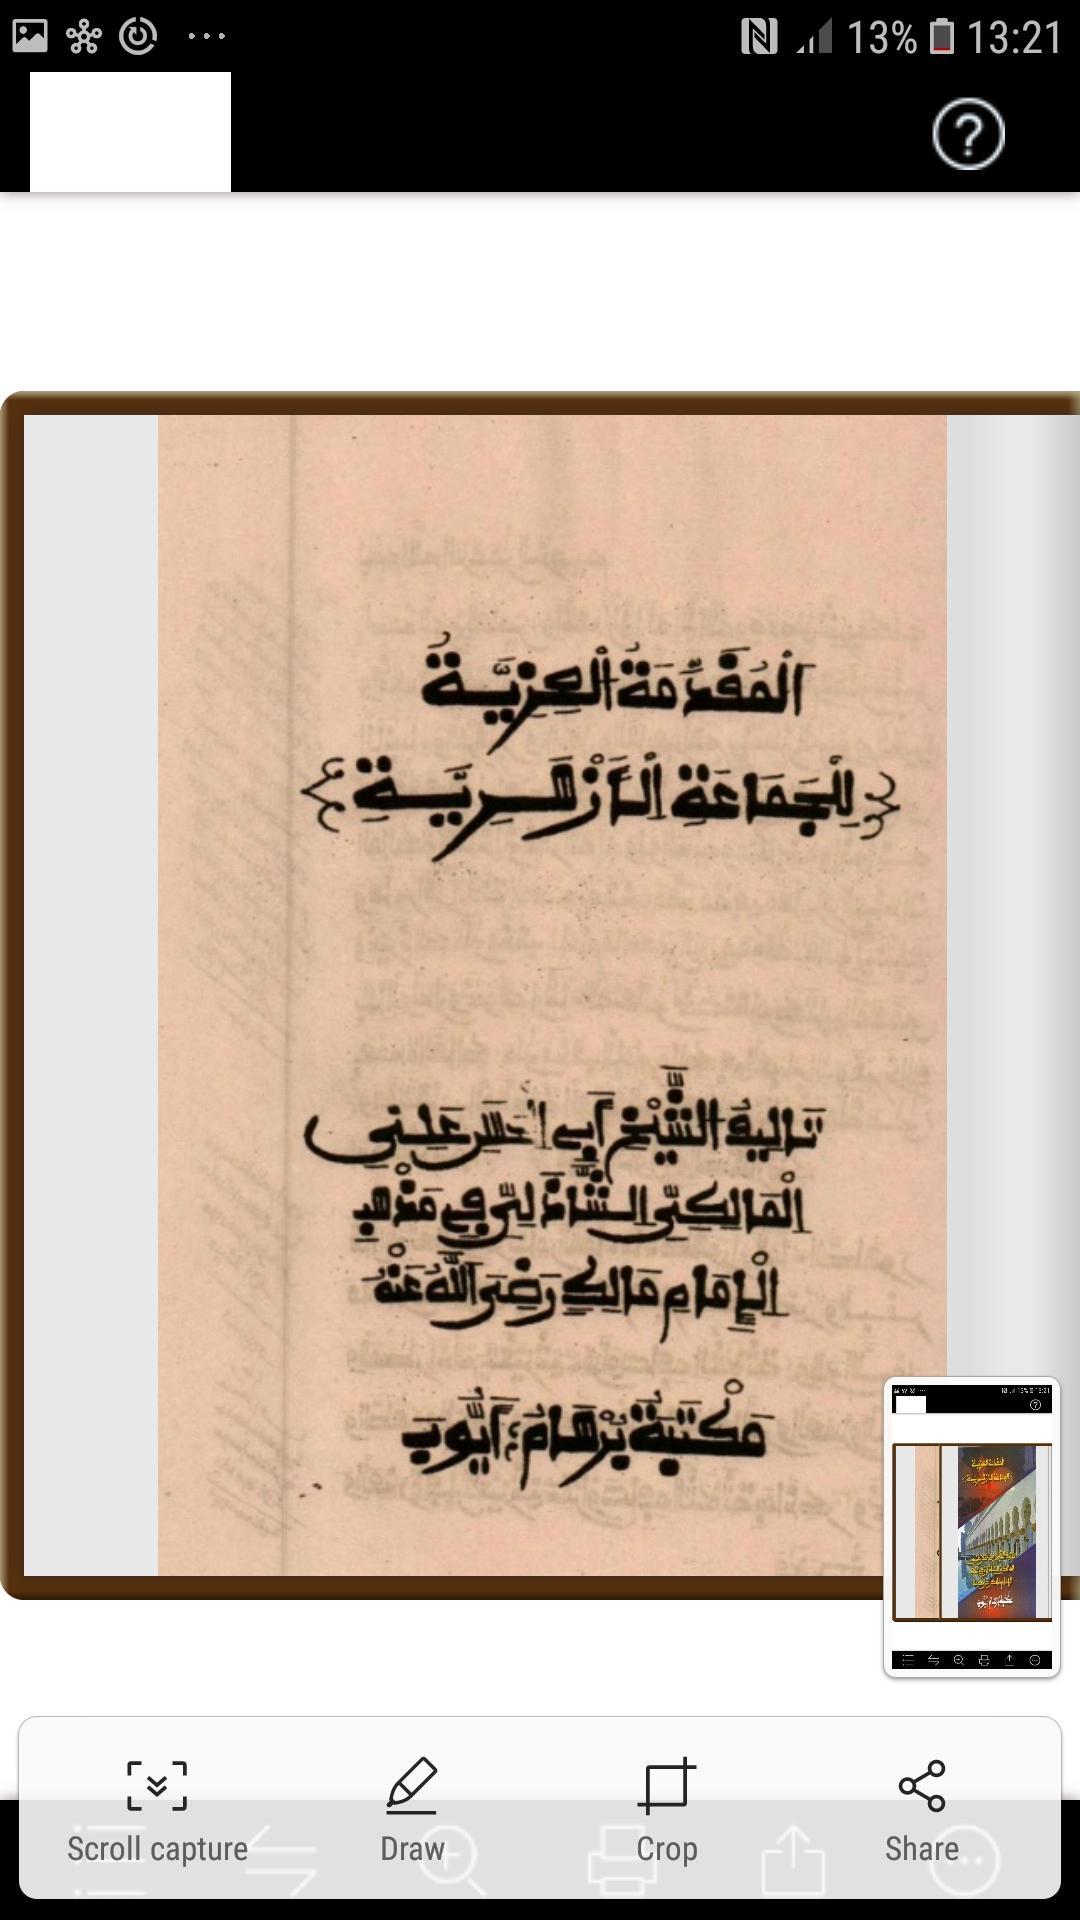 13% 13:21
اَلْمُقَدِّمَةُ الْعِزِّيَّةُ
لِلْجَمَاعَةِ الْأَزْهَرِيَّةِ
تأليف الشَّيْخ أبي الحسن علي
الْمَالِكِيِّ الشَّاذَلِيِّ فِي مَذْهَبِ
الْإِمَامِ مَالِكٍ رَضِيَ اللَّهُ عَنْهُ
مَكْتَبَةُ بُرْهَامُ أَيُّوبَ
Scroll capture
Draw
Crop
Share